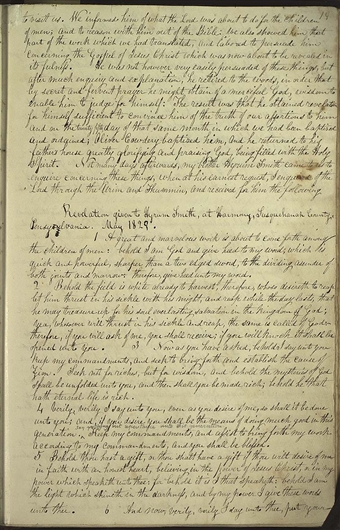 to visit us. We informed him of what the Lord was about to do for the children
of men; and to reason with him out of the Bible: we also showed him that
part of the work which we had translated, and labored to persuade him
concerning the Gospel of Jesus Christ which was now about to be revealed in
its fulness. He was not however very easily persuaded of these things, but
after much enquiry and explanation, he retired to the woods, in order that
by secret and fervent prayer he might obtain of a merciful God, wisdom to
enable him to judge for himself: The result was that he obtained revelation
for himself sufficient to convince him of the truth of our assertions to him
and on the day of that same month in which we had been baptized
and ordained; Oliver Cowdery baptized him, and he returned to his
fathers house greatly glorifying and praising God, being filled with the Holy
Spirit. Not many days afterwards, my brother Hyrum Smith came to us to
enquire concerning these things, when at his earnest request, I enquired of the
Lord through the Urim and Thummim, and received for him the following
Revelation given to Hyrum Smith, at Harmony, Susquehannah County,
Pensylvania. May 1829.
1 A great and marvelous work is about to come forth among
the children of men: behold I am God and give heed to my word, which is
quick and powerful, sharper than a two edged sword, to the dividing asunder of
both joints and marrow: therefore, give heed unto my word.
2 Behold the field is white already to harvest, therefore, whoso desireth to reap
let him thrust in his sickle with his might, and reap while the day lasts, that
he may treasure up for his soul everlasting salvation in the kingdom of God;
yea, whosoever will thrust in his sickle and reap, the same is called of God—
therefore, if you will ask of me you shall receive; if you will knock it shall be
opened unto you. 3 Now as you have asked, behold I say unto you
keep my commandments, and seek to bring forth and establish the cause of
Zion. Seek not for riches, but for wisdom, and behold the mysteries of God
shall be unfolded unto you, and then shall you be made rich; behold he that
hath eternal life is rich.
4 Verily, verily I say unto you, even as you desire of me, so shall it be done
unto you; and, if you desire you shall be the means of doing much good in this
generation. Keep my commandments, and assist to bring forth my work
according to my commandments, and you shall be blessed.
5 Behold thou hast a gift, or thou shalt have a gift if thou wilt desire of me
in faith with an honest heart, believing in the power of Jesus Christ, or in my
power which speaketh unto thee: for behold it is I that speaketh: behold I am
the light which shineth in the darkness, and by my power I give these words
unto thee. 6 And now, Verily, verily I say unto thee, put your